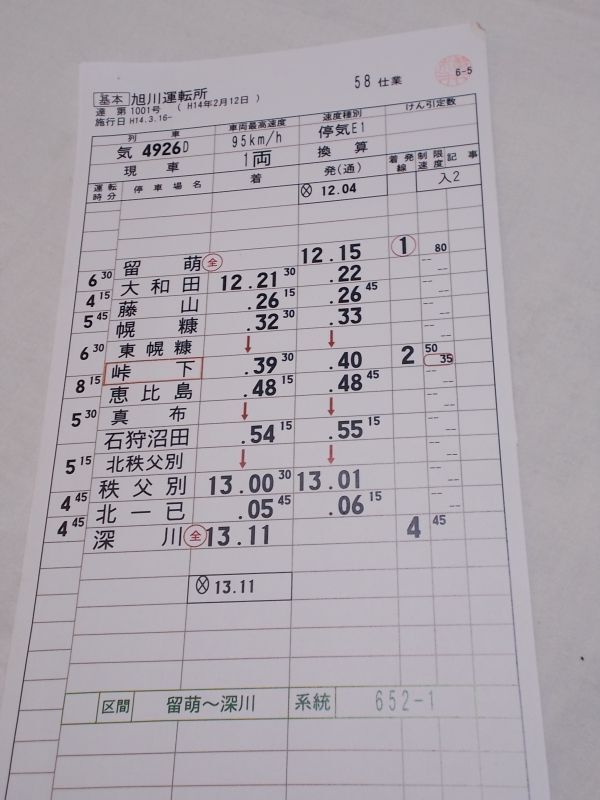 基本 旭川運転所 58仕業 6-5
達 第1001号 (H14年2月12日)
施行日H14.3.16-
列車 車両最高速度 速度種別 けん引定数
気4926D 95km/h 停気E1
現車 1両 換算
運転時分 停車場名 着 発(通) 着発線 制限速度 記事
12.04 入2
留萌 全 12.15 1 80
6 30
大和田 12.21 30 .22 --
4 15
藤山 .26 15 .26 45 --
5 45
幌糠 .32 30 .33 --
東幌糠 ↓ ↓ --
6 30
峠下 .39 30 .40 2 50 35
8 15
恵比島 .48 15 .48 45 --
真布 ↓ ↓ --
5 30
石狩沼田 .54 15 .55 15 --
北秩父別 ↓ ↓ --
5 15
秩父別 13.00 30 13.01 --
4 45
北一已 .05 45 .06 15 --
4 45
深川 全 13.11 4 45
13.11
区間 留萌〜深川 系統 652-1